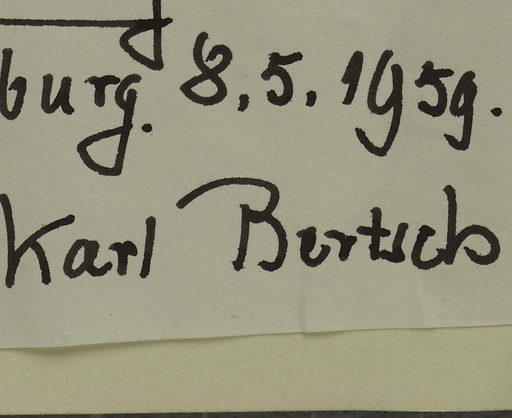 burg. 8.5.1959.
Karl Bertsch